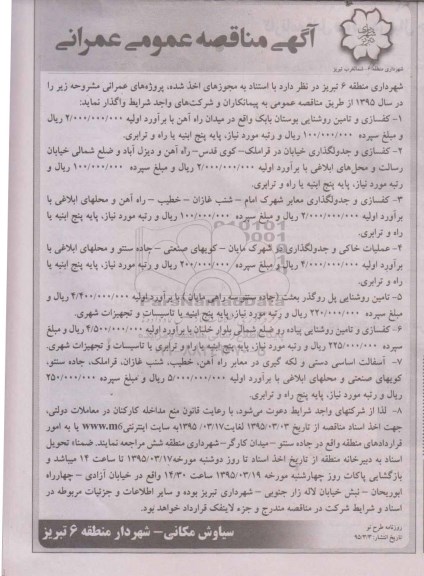 آگهی مناقصه عمومی عمرانی
شهرداری منطقه ۶ - شمالغرب تبریز
شهرداری منطقه ۶ تبریز در نظر دارد با استناد به مجوزهای اخذ شده، پروژه‌های عمرانی مشروحه زیر را
در سال ۱۳۹۵ از طریق مناقصه عمومی به پیمانکاران و شرکت‌های واجد شرایط واگذار نماید:
۱- کفسازی و تامین روشنایی بوستان بابک واقع در میدان راه آهن با برآورد اولیه ۲/۰۰۰/۰۰۰/۰۰۰ ریال
و مبلغ سپرده ۱۰۰/۰۰۰/۰۰۰ ریال و رتبه مورد نیاز، پایه پنج ابنیه یا راه و ترابری.
۲- کفسازی و جدولگذاری خیابان در قراملک- کوی قدس- راه آهن و دیزل آباد و ضلع شمالی خیابان
رسالت و محل‌های ابلاغی با برآورد اولیه ۲/۰۰۰/۰۰۰/۰۰۰ ریال و مبلغ سپرده ۱۰۰/۰۰۰/۰۰۰ ریال و
رتبه مورد نیاز، پایه پنج ابنیه یا راه و ترابری.
۳- کفسازی و جدولگذاری معابر شهرک امام - شنب غازان - خطیب - راه آهن و محلهای ابلاغی با
برآورد اولیه ۲/۰۰۰/۰۰۰/۰۰۰ ریال و مبلغ سپرده ۱۰۰/۰۰۰/۰۰۰ ریال و رتبه مورد نیاز، پایه پنج ابنیه یا
راه و ترابری.
۴- عملیات خاکی و جدولگذاری در شهرک مایان - کویهای صنعتی - جاده سنتو و محلهای ابلاغی با
برآورد اولیه ۴/۰۰۰/۰۰۰/۰۰۰ ریال و مبلغ سپرده ۲۰۰/۰۰۰/۰۰۰ ریال و رتبه مورد نیاز، پایه پنج ابنیه یا
راه و ترابری.
۵- تامین روشنایی پل روگذر بعثت (جاده سنتو سه راهی مایان) با برآورد اولیه ۴/۴۰۰/۰۰۰/۰۰۰ ریال و
مبلغ سپرده ۲۲۰/۰۰۰/۰۰۰ ریال و رتبه مورد نیاز، پایه پنج ابنیه یا تاسیسات و تجهیزات شهری.
۶- کفسازی و تامین روشنایی پیاده رو ضلع شمالی بلوار خلبان با برآورد اولیه ۴/۵۰۰/۰۰۰/۰۰۰ ریال و مبلغ
سپرده ۲۲۵/۰۰۰/۰۰۰ ریال و رتبه مورد نیاز، پایه پنج ابنیه یا راه و ترابری یا تاسیسات و تجهیزات شهری.
۷- آسفالت اساسی دستی و لکه گیری در معابر راه آهن، خطیب، شنب غازان، قراملک، جاده سنتو،
کویهای صنعتی و محلهای ابلاغی با برآورد اولیه ۵/۰۰۰/۰۰۰/۰۰۰ ریال و مبلغ سپرده ۲۵۰/۰۰۰/۰۰۰
ریال و رتبه مورد نیاز، پایه پنج راه و ترابری.
۸- لذا از شرکتهای واجد شرایط دعوت می‌شود، با رعایت قانون منع مداخله کارکنان در معاملات دولتی،
جهت اخذ اسناد مناقصه از تاریخ ۱۳۹۵/۰۳/۰۳ لغایت ۱۳۹۵/۰۳/۱۷ به سایت اینترنتی www.m6 یا به امور
قراردادهای منطقه واقع در جاده سنتو - میدان کارگر - شهرداری منطقه شش مراجعه نمایند. ضمناً، تحویل
اسناد به دبیرخانه منطقه از تاریخ اخذ اسناد تا روز دوشنبه مورخه ۱۳۹۵/۰۳/۱۷ تا ساعت ۱۴ میباشد و
بازگشایی پاکات روز چهارشنبه مورخه ۱۳۹۵/۰۳/۱۹ ساعت ۱۴/۳۰ واقع در خیابان آزادی - چهارراه
ابوریحان - نبش خیابان لاله زار جنوبی - شهرداری تبریز بوده و سایر اطلاعات و جزئیات مربوطه در
اسناد و شرایط شرکت در مناقصه مندرج و جزء لاینفک قرارداد خواهد بود.
سیاوش مکانی- شهردار منطقه ۶ تبریز
روزنامه طرح نو
تاریخ انتشار: ۹۵/۳/۳